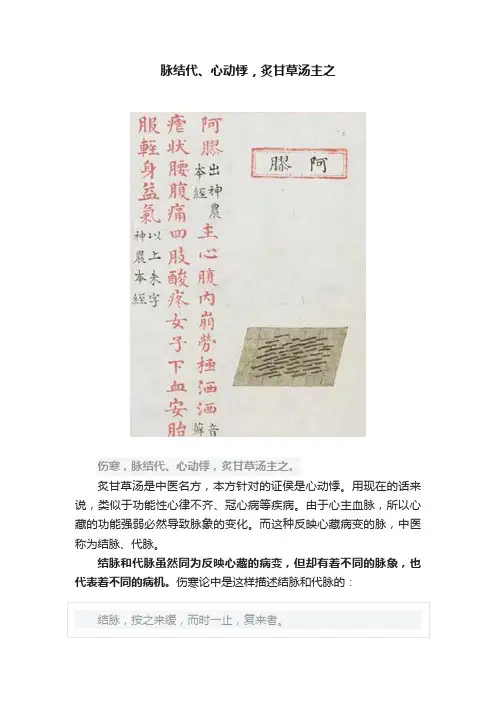 脉结代、心动悸，炙甘草汤主之
阿膠
阿膠出神農本經主心腹内崩勞極洒洒音蘚
瘧狀腰腹痛四肢酸疼女子下血安胎
服輕身益氣以上朱字神農本經
伤寒，脉结代、心动悸，炙甘草汤主之。
炙甘草汤是中医名方，本方针对的证侯是心动悸。用现在的话来
说，类似于功能性心律不齐、冠心病等疾病。由于心主血脉，所以心
藏的功能强弱必然导致脉象的变化。而这种反映心藏病变的脉，中医
称为结脉、代脉。
结脉和代脉虽然同为反映心藏的病变，但却有着不同的脉象，也
代表着不同的病机。伤寒论中是这样描述结脉和代脉的：
结脉，按之来缓，而时一止，复来者。